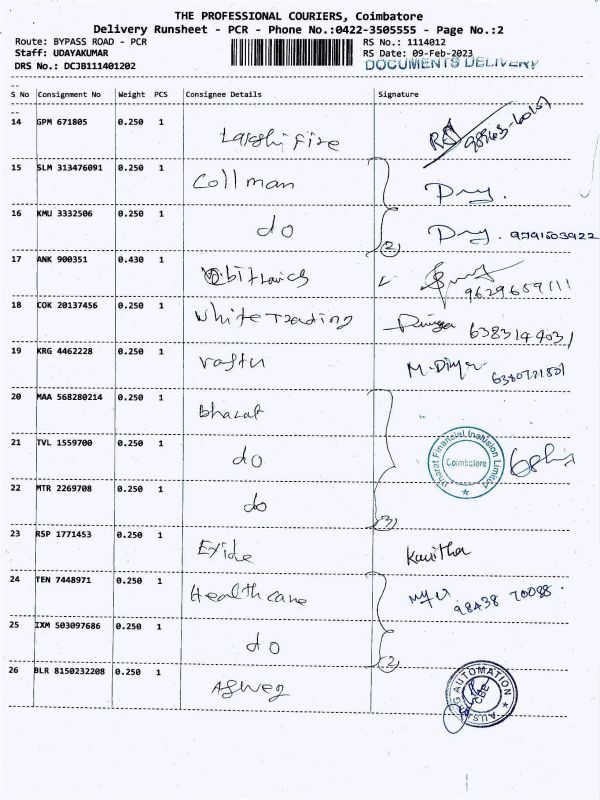 THE PROFESSIONAL COURIERS, Coimbatore
Delivery Runsheet - PCR - Phone No.:0422-3505555 - Page No.:2
Route: BYPASS ROAD - PCR
RS No.: 1114012
Staff: UDAYAKUMAR
RS Date: 09-Feb-2023
DRS No.: DCJB111401202
DOCUMENTS DELIVERY
S No Consignment No Weight PCS Consignee Details Signature
14 GPM 671805 0.250 1
15 SLM 313476091 0.250 1 Collman
16 KMU 3332506 0.250 1 do (2) 9791503922
17 ANK 900351 0.430 1 9629659111
18 COK 20137456 0.250 1 White Trading
19 KRG 4462228 0.250 1
20 MAA 568280214 0.250 1 bharat
21 TVL 1559700 0.250 1 do Bharat Financial Inclusion Limited Coimbatore
22 MTR 2269708 0.250 1 do (3)
23 RSP 1771453 0.250 1 Exide Kavitha
24 TEN 7448971 0.250 1 Health care 98438 70088
25 IXM 503097686 0.250 1 do (2)
26 BLR 8150232208 0.250 1 AUTOMATION CBE